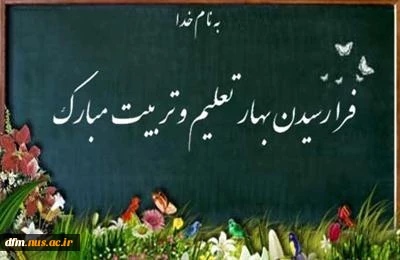 به نام خدا
فرا رسیدن بهار تعلیم و تربیت مبارک
dfm.nus.ac.ir